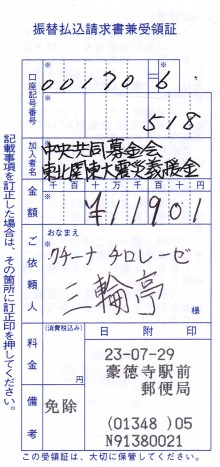 振替払込請求書兼受領証
口座記号番号
00170 6
518
加入者名
中央共同募金会
東北関東大震災義援金
金額
千 百 十 万 千 百 十 円
¥11901
ご依頼人
おなまえ
クチーナ チロレーゼ
三輪亭
様
料金
(消費税込み)
円
日附印
23-07-29
豪徳寺駅前
郵便局
(01348)05
N91380021
備考
免除
記載事項を訂正した場合は、その箇所に訂正印を押してください。
この受領証は、大切に保管してください。